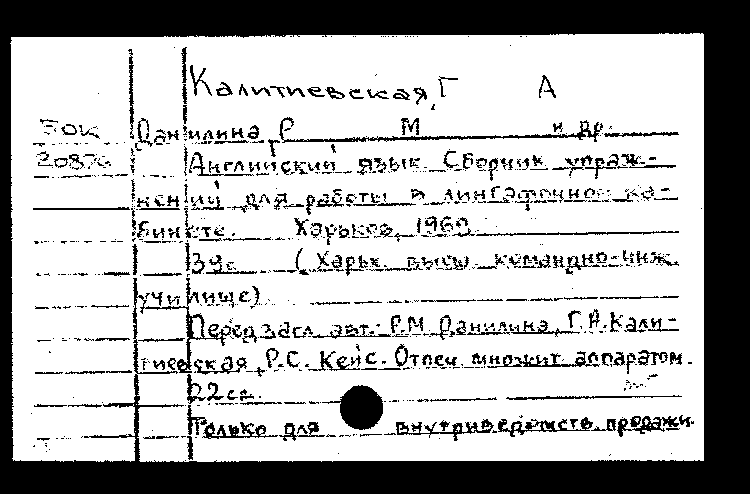 Калитиевская, Г А
Данилина, Р М и др.
Английский язык. Сборник упраж-
нений для работы в лингафонном ка-
бинете. Харьков, 1969.
39с (Харьк. высш. командно-инж.
училище)
Перед загл. авт.: Р.М. Данилина, Г.А. Кали-
тиевская, Р.С. Кейс. Отпеч. множит. аппаратом.
22см.
Только для внутриведомств. продажи.